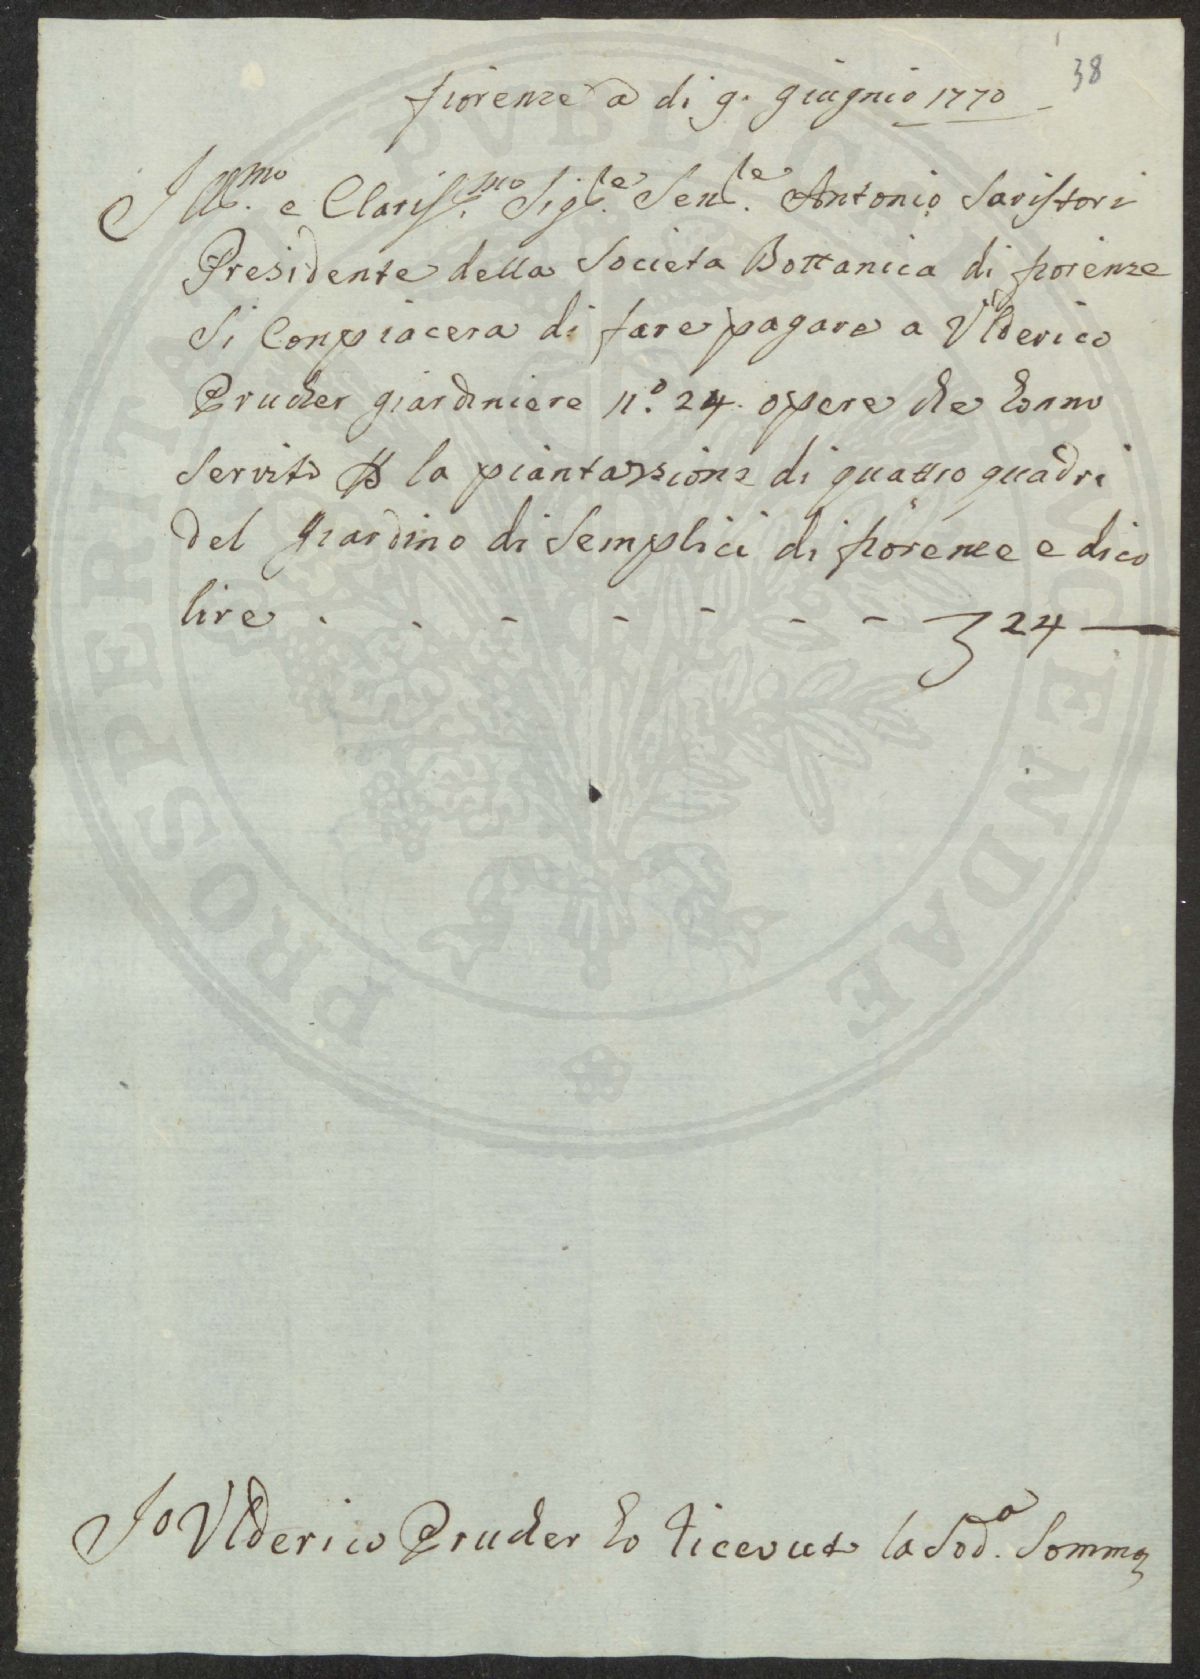 38
fiorenze a di 9. giugnio 1770
Ill.mo e Clariss.mo Sig.re Sen.re Antonio Saristori
Presidente della Societa Bottanica di fiorenze
Si Conpiacera di fare pagare a Vlderico
Prucher giardiniere n.o 24. opere che hanno
Servito p la piantazzione di quattro quadri
del giardino di Semplici di fiorenze e dico
lire . . - - - - - 24 —
Io Vlderico Prucher ho ricevuto la Sod.a Somma
PROSPERITATI PVBLICAE AVGENDAE